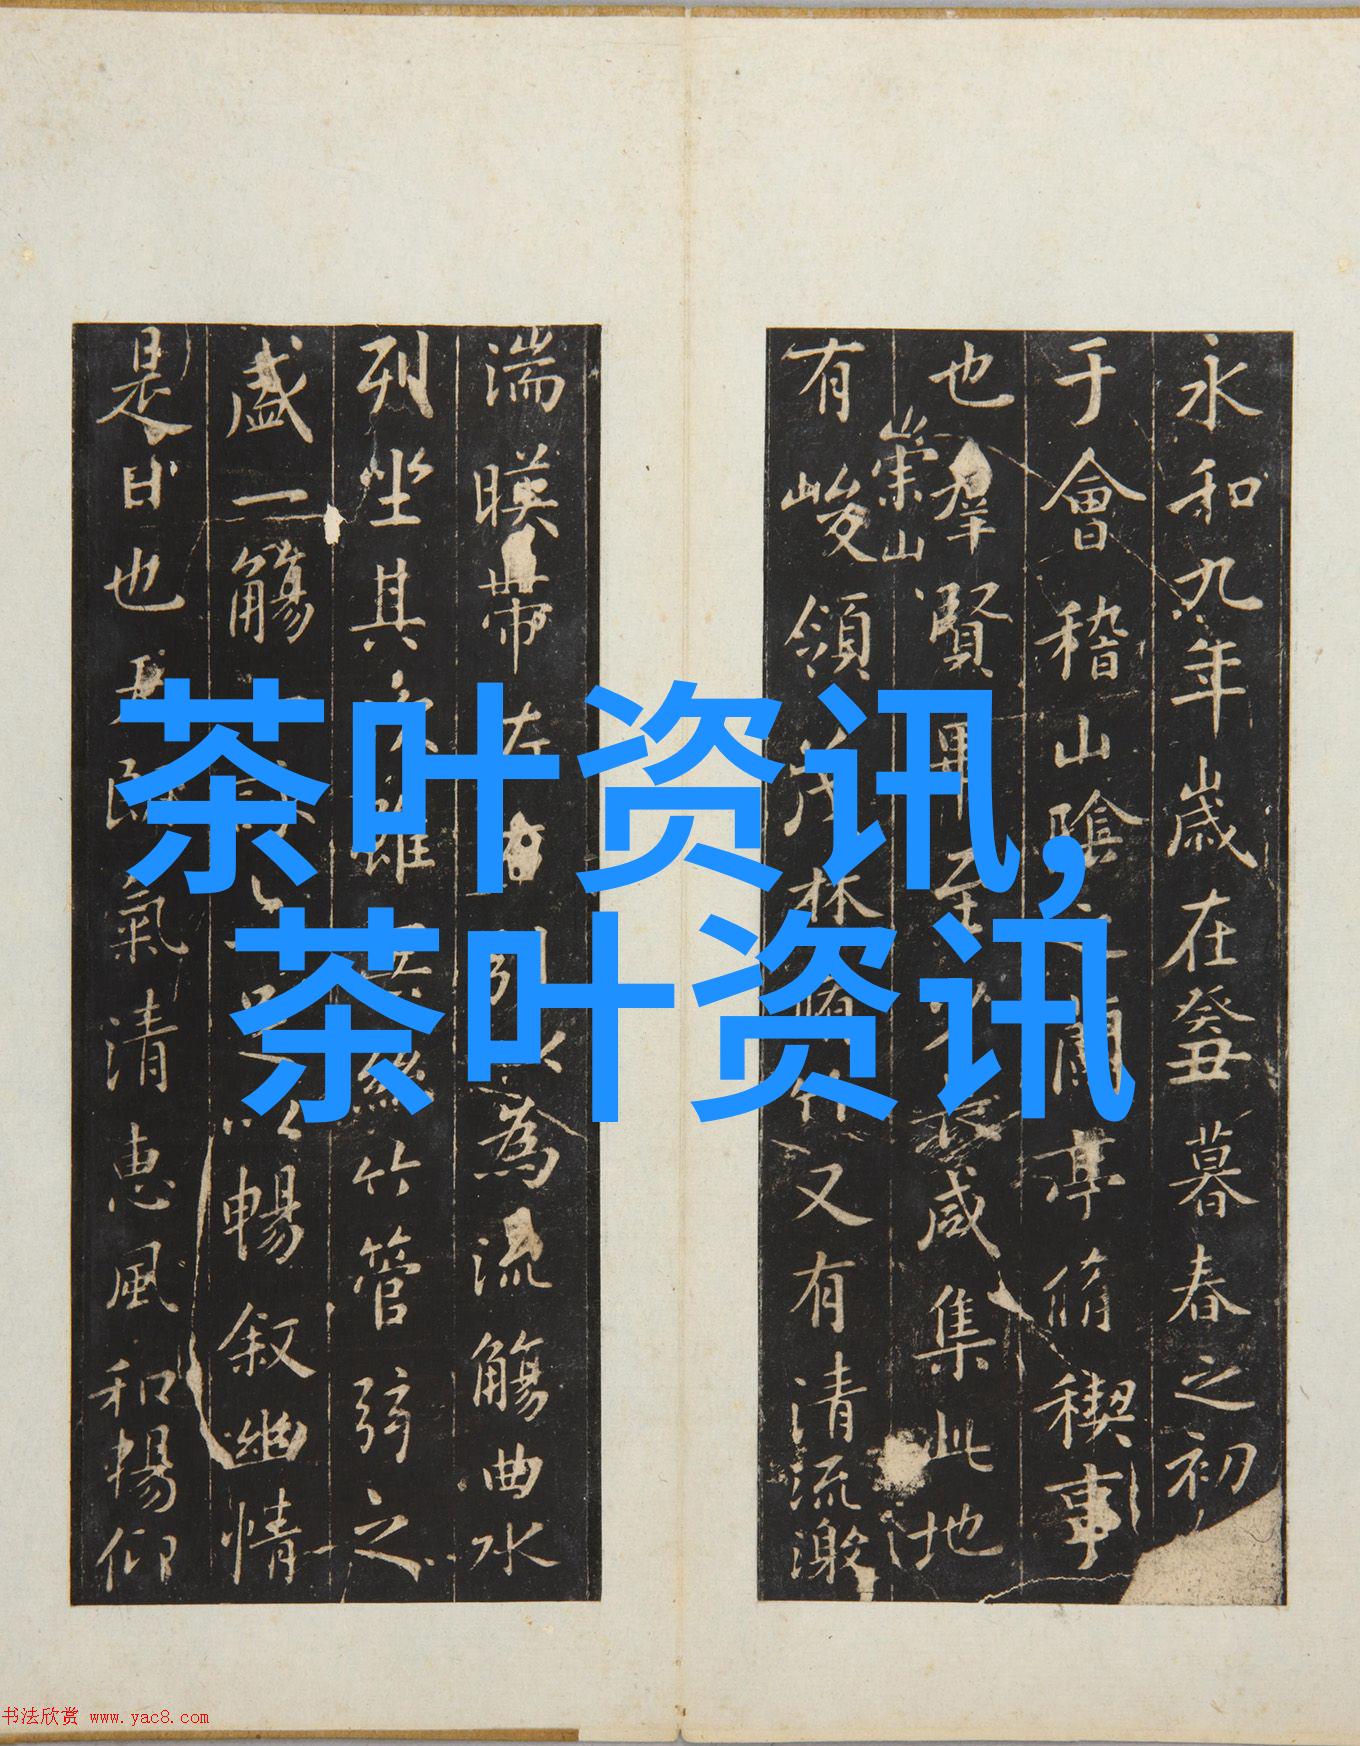 永和九年歲在癸丑暮春之初
于會稽山陰之蘭亭脩稧事
也羣賢畢至少長咸集此地
崇山
有峻領茂林脩竹又有清流激
湍暎帶左右引以為流觴曲水
列坐其次雖無絲竹管弦之
盛一觴一詠亦足以暢叙幽情
是日也天朗氣清惠風和暢仰
茶叶资讯,
茶叶资讯
书法欣赏 www.yac8.com